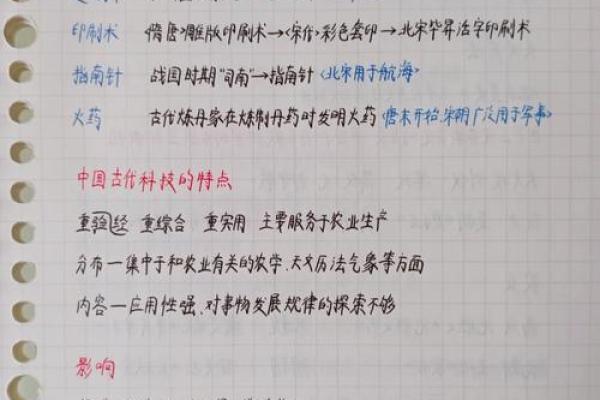 印刷术 <隋唐>雕版印刷术→<宋代>彩色套印→北宋毕昇活字印刷术
指南针 战国时期"司南"→指南针<北宋用于航海>
火药 古代炼丹家在炼制丹药时发明火药<唐末开始,宋朝广泛用于军事>
中国古代科技的特点
重经验 重综合 重实用 主要服务于农业生产
分布一集中于和农业有关的农学、天文历法气象等方面
内容一应用性强、对事物发展规律的探索不够
影响